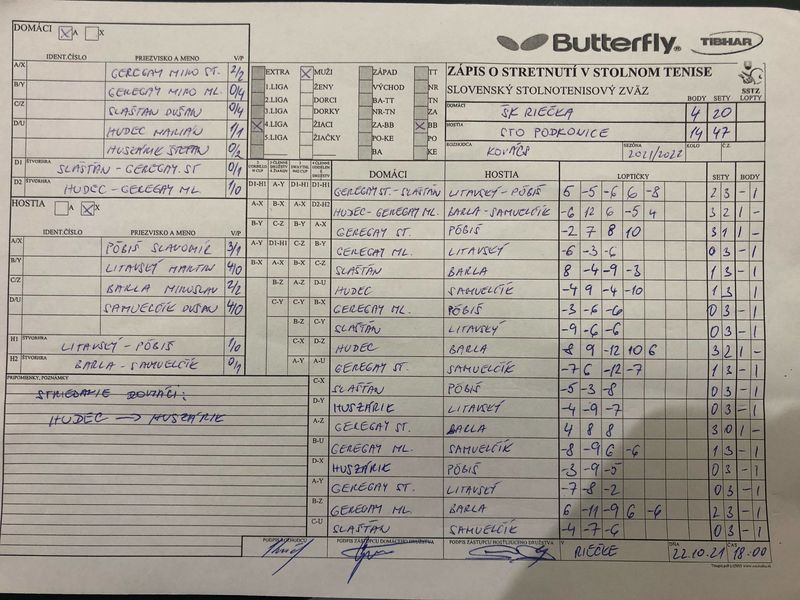 DOMÁCI A X
Butterfly TIBHAR
IDENT.ČÍSLO PRIEZVISKO A MENO V/P
A/X GEREGAY MIRO ST. 2/2
B/Y GEREGAY MIRO ML. 0/4
C/Z SLAŠŤAN DUŠAN 0/4
D/U HUDEC MARIÁN 1/1
HUSZÁRIK ŠTEFAN 0/2
D1 ŠTVORHRA SLAŠŤÁN - GEREGAY ST. 0/1
D2 ŠTVORHRA HUDEC - GEREGAY ML. 1/0
HOSTIA A X
IDENT.ČÍSLO PRIEZVISKO A MENO V/P
A/X PÔBIŠ SLAVOMÍR 3/1
B/Y LITAVSKÝ MARTIN 4/0
C/Z BARLA MIROSLAV 2/2
D/U SAMUELČÍK DUŠAN 4/0
H1 ŠTVORHRA LITAVSKÝ - PÔBIŠ 1/0
H2 ŠTVORHRA BARLA - SAMUELČÍK 0/1
PRIPOMIENKY, POZNÁMKY
STRIEDANIE DOMÁCI:
HUDEC → HUSZÁRIK
EXTRA MUŽI ZÁPAD TT
1.LIGA ŽENY VÝCHOD NR
2.LIGA DORCI BA-TT TN
3.LIGA DORKY NR-TN ZA
4.LIGA ŽIACI ZA-BB BB
5.LIGA ŽIAČKY PO-KE PO
BA KE
ZÁPIS O STRETNUTÍ V STOLNOM TENISE
SLOVENSKÝ STOLNOTENISOVÝ ZVÄZ
SSTZ
BODY SETY LOPTY
DOMÁCI ŠK RIEČKA 4 20
HOSTIA STO PODKONICE 14 47
ROZHODCA KOVÁČS SEZÓNA 2021/2022 KOLO Č.Z.
DOMÁCI HOSTIA LOPTIČKY SETY BODY
D1-H1 A-Y D1-H1 D1-H1 GEREGAY ST. - SLAŠŤÁN LITAVSKÝ - PÔBIŠ 5 -5 -6 6 -8 2 3 - 1
A-X B-X A-X D2-H2 HUDEC - GEREGAY ML. BARLA - SAMUELČÍK -6 12 6 -5 4 3 2 1 -
B-Y C-Z B-Y A-X GEREGAY ST. PÔBIŠ -2 7 8 10 3 1 1 -
A-Y D1-H1 C-Z B-Y GEREGAY ML. LITAVSKÝ -6 -3 -6 0 3 - 1
B-X A-X B-X C-Z SLAŠŤÁN BARLA 8 -4 -9 -3 1 3 - 1
B-Z A-Z D-U HUDEC SAMUELČÍK -4 9 -4 -10 1 3 1
C-Y D-Z B-X GEREGAY ML. PÔBIŠ -3 -6 -6 0 3 - 1
B-Z C-Y SLAŠŤAN LITAVSKÝ -9 -6 -6 0 3 - 1
C-X D-Z HUDEC BARLA -8 9 -12 10 6 3 2 1 -
A-Y A-U GEREGAY ST. SAMUELČÍK -7 6 -12 -7 1 3 - 1
C-X SLAŠŤAN PÔBIŠ -5 -3 -8 0 3 - 1
D-Y HUSZÁRIK LITAVSKÝ -4 -9 -7 0 3 - 1
A-Z GEREGAY ST. BARLA 4 8 8 3 0 1 -
B-U GEREGAY ML. SAMUELČÍK -8 -9 6 -6 1 3 - 1
D-X HUSZÁRIK PÔBIŠ -3 -9 -5 0 3 - 1
A-Y GEREGAY ST. LITAVSKÝ -7 -8 -2 0 3 - 1
B-Z GEREGAY ML. BARLA 6 -11 -9 6 -6 2 3 - 1
C-U SLAŠŤAN SAMUELČÍK -4 -7 -6 0 3 - 1
PODPIS ROZHODCU PODPIS ZÁSTUPCU DOMÁCEHO DRUŽSTVA PODPIS ZÁSTUPCU HOSŤUJÚCEHO DRUŽSTVA V RIEČKE DŇA 22.10.21 ČAS 18:00